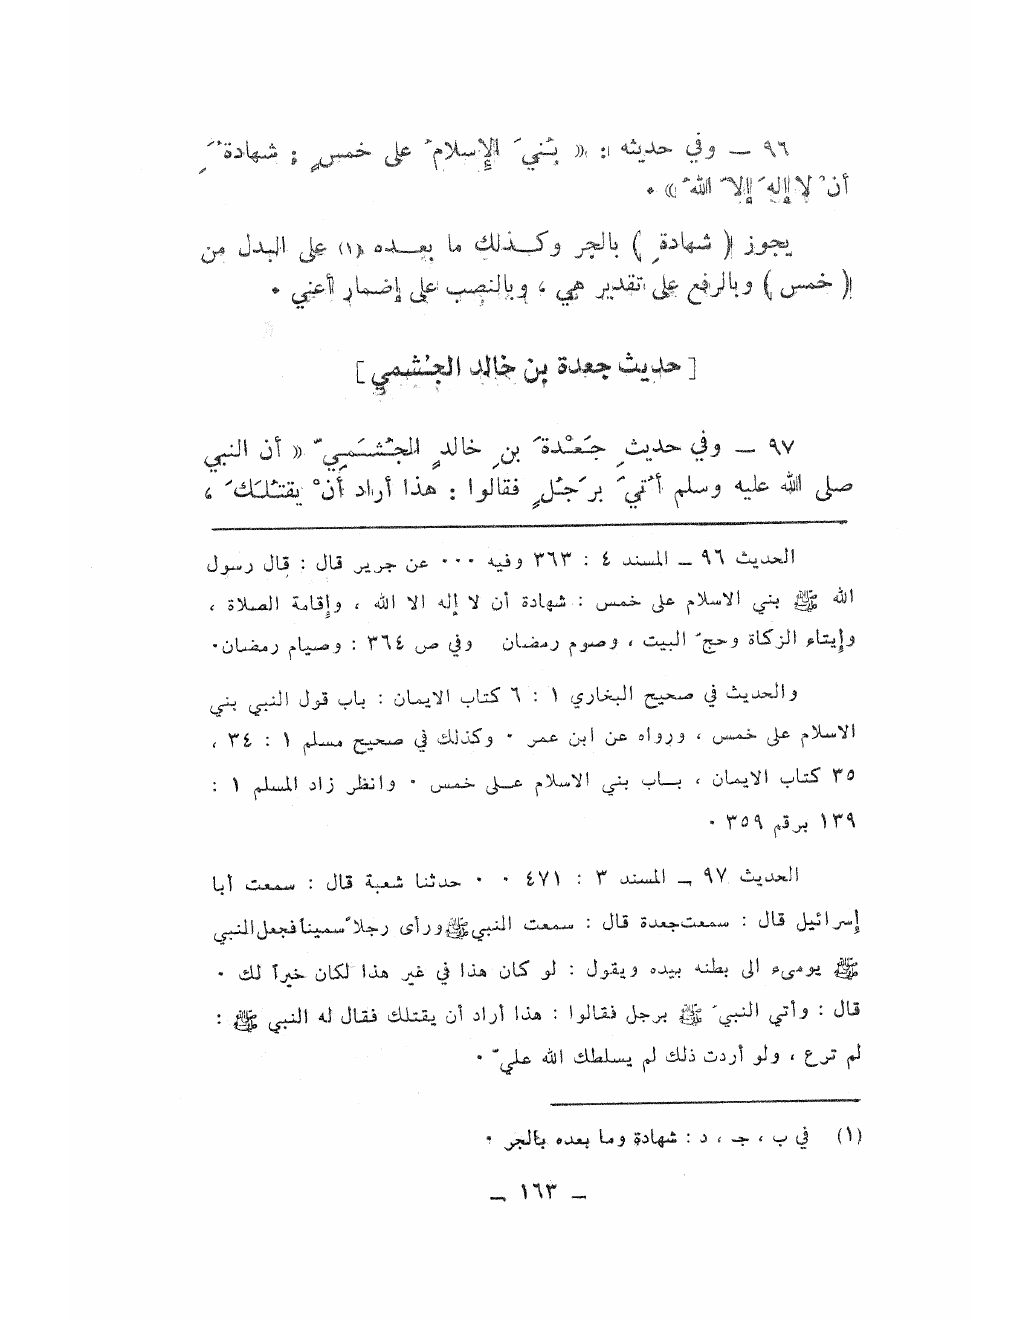 ٩٦ ــ وفي حديثه : « بُنيَ الإِسلامُ على خمسٍ : شهادةُ َِ
أنْ لا إلهَ إلاّ اللهُ » ٠
يجوز ( شهادةِ ) بالجر وكـــذلك ما بعـــده (١) على البدل من
( خمس ) وبالرفع على تقدير هي ، وبالنصب على إضمار أعني ٠
[ حديث جعدة بن خالد الجُشمي ]
٩٧ ــ وفي حديثِ جَعْدةَ بنِ خالدٍ الجُشَمِيّ « أن النبي
صلى الله عليه وسلم أُتيَ برَجُلٍ فقالوا : هذا أراد أنْ يقتُلَكَ ،
الحديث ٩٦ ــ المسند ٤ : ٣٦٣ وفيه ٠٠٠ عن جرير قال : قال رسول
الله ﷺ بني الاسلام على خمس : شهادة أن لا إله الا الله ، وإقامة الصلاة ،
وإيتاء الزكاة وحجّ البيت ، وصوم رمضان وفي ص ٣٦٤ : وصيام رمضان٠
والحديث في صحيح البخاري ١ : ٦ كتاب الايمان : باب قول النبي بني
الاسلام على خمس ، ورواه عن ابن عمر ٠ وكذلك في صحيح مسلم ١ : ٣٤ ،
٣٥ كتاب الايمان ، بـــاب بني الاسلام عـــلى خمس ٠ وانظر زاد المسلم ١ :
١٣٩ برقم ٣٥٩ ٠
الحديث ٩٧ ــ المسند ٣ : ٤٧١ ٠ ٠ حدثنا شعبة قال : سمعت أبا
إسرائيل قال : سمعت جعدة قال : سمعت النبي ﷺ ورأى رجلاً سميناً فجعل النبي
ﷺ يومىء الى بطنه بيده ويقول : لو كان هذا في غير هذا لكان خيراً لك ٠
قال : وأتي النبيَ ﷺ برجل فقالوا : هذا أراد أن يقتلك فقال له النبي ﷺ :
لم ترع ، ولو أردت ذلك لم يسلطك الله عليّ ٠
(١) في ب ، جـ ، د : شهادة وما بعده بالجر ٠
ــ ١٦٣ ــ